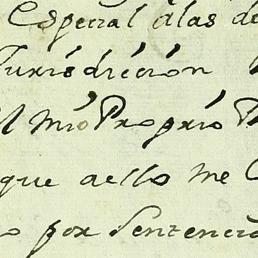 Especial álas de
Jurisdicción
el mio Proprio
que aello me
por Sentencia